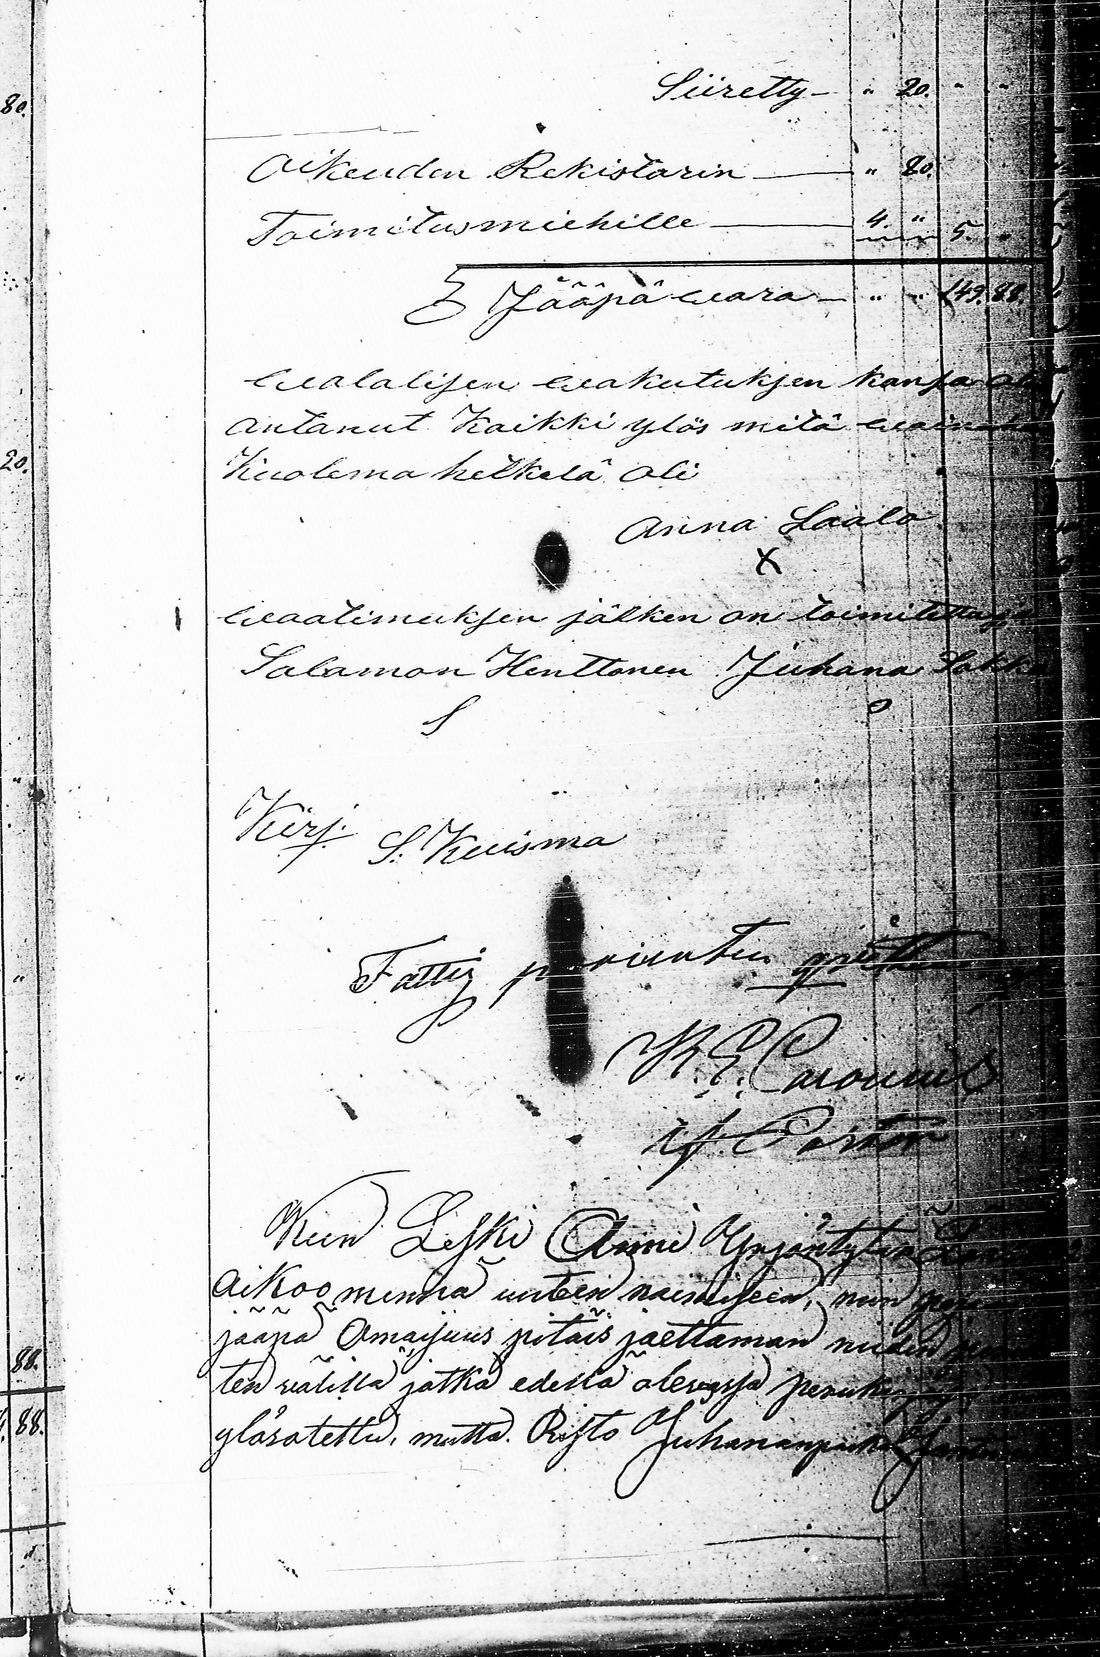 80.
Siiretty — " 20. " "
Oikeuden Rekistarin — " 80.
Toimitusmiehille — 4. " 5. "
Jääpä wara — " " 149. 88.
walalisen wakutuksen kansa
antanut Kaikki ylös mitä
20.
Kuolema hetkelä oli
Anna Laalo
X
waatimuksen jälken on toimitettu
Salamon Henttonen Juhana Sokka
S o
Kirj. S. Kuisma
Fattig
Pastor
Kun Leski Anni Yrjöntytär
aikoo mennä uuteen naimiseen, niin
jääpä Omaisuus pitäis jaettaman niiden
88.
ten välillä jotka edellä olevassa
88.
ylösotettu, mutta Risto Juhananpoika